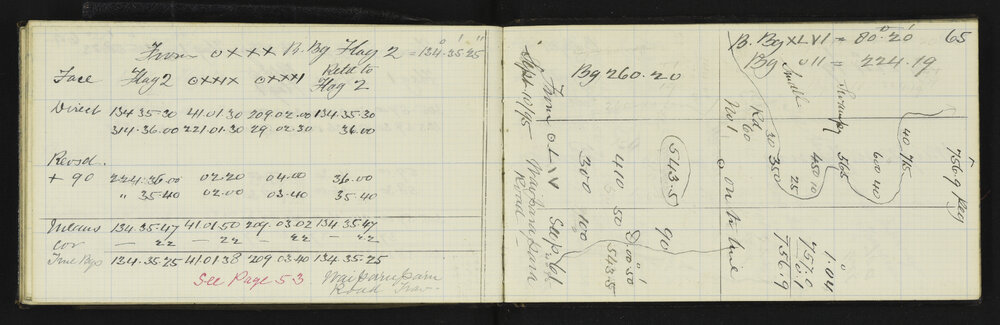 From OXXX B.Bg Flag 2 = 134.35.25
Face Flag 2 OXXIX OXXXI Retd to Flag 2
Direct 134.35.30 41.01.30 209.02.00 134.35.30
314.36.00 221.01.30 29.02.30 36.00
Revsd.
+ 90 224.36.00 02.20 04.00 36.00
" 35.40 02.00 03.40 35.40
Means 134.35.47 41.01.50 209.03.02 134.35.47
cor — 22 — 22 — 22 — 22
True Bgs 134.35.25 41.01.38 209.03.40 134.35.25
See Page 53 Road Trav.
65
B. Bg XLVI = 80°.20'
Bg OII = 224.19
Bg 260.20
Sept 10/95
From OLXV
Road
300 100
410 50
543.5
543.5 90
Rd 60
No 1 on to line
30 350
Small
450 10
25
Swampy
565
600 40
40 715
756.9 Peg
1.04
757.0
756.9